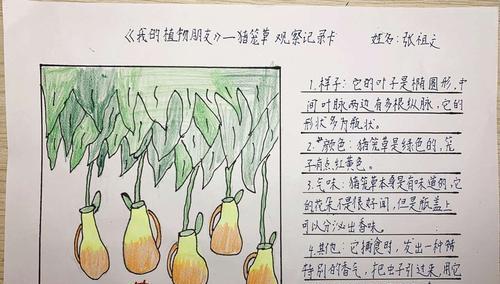 《我的植物朋友》—猪笼草 观察记录卡 姓名:张祖文
1.样子:它的叶子是椭圆形,中
间叶脉两边有多根纵脉,它的
形状多为瓶状。
2.颜色:猪笼草是绿色的,笼
子有点红黄色。
3.气味:猪笼草本身是有味道的,它
的花朵不是很好闻,但是瓶盖上
可以分泌出香味。
4.其他:它捕食时,发出一种特
特别的香气,把虫子引过来,用它